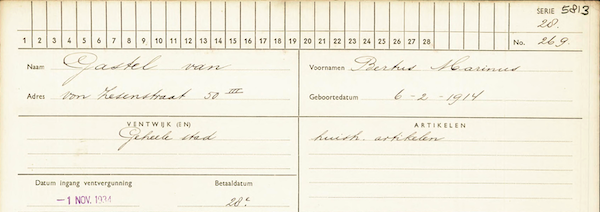 SERIE 5813
28.
1 2 3 4 5 6 7 8 9 10 11 12 13 14 15 16 17 18 19 20 21 22 23 24 25 26 27 28
No. 269.
Naam Gastel van
Voornamen Bertus Marinus
Adres von Zesenstraat 50 III
Geboortedatum 6-2-1914
VENTWIJK (EN)
ARTIKELEN
Geheele stad
huish. artikelen
Datum ingang ventvergunning
Betaaldatum
-1 NOV. 1934
28e